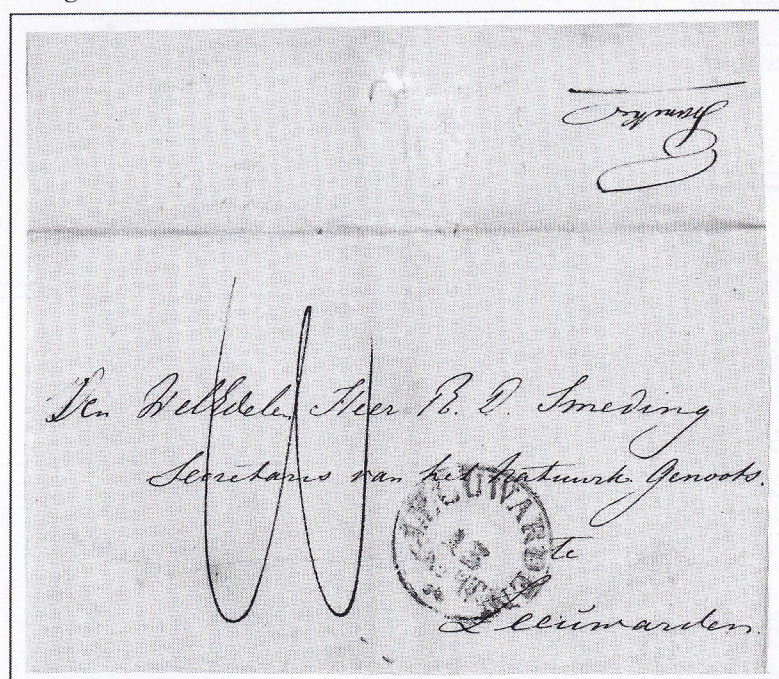 Franeker
Den WelEdelen Heer R. D. Smeding
Secretaris van het Natuurk. Genoots.
te
Leeuwarden.
LEEUWARDEN
13